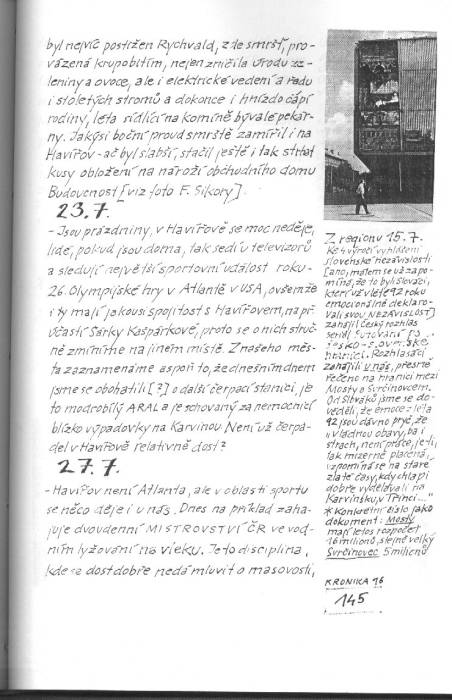 byl nejvíc postižen Rychvald, zde smršť, pro-
vázená krupobitím, nejen zničila úrodu ze-
leniny a ovoce, ale i elektrické vedení a řadu
i stoletých stromů a dokonce i hnízdo čápí
rodiny, léta sídlící na komíně bývalé pekár-
ny. Jakýsi boční proud smrště zamířil i na
Havířov - ač byl slabší, stačil ještě i tak strhat
kusy obložení na nároží obchodního domu
Budoucnost [viz foto F. Sikory].
23.7.
- Jsou prázdniny, v Havířově se moc neděje,
lidé, pokud jsou doma, tak sedí u televizorů
a sledují největší sportovní událost roku -
26. Olympijské hry v Atlantě v USA, ovšemže
i ty mají jakousi spojitost s Havířovem, na př.
účastí Šárky Kašpárkové, proto se o nich struč-
ně zmíníme na jiném místě. Z našeho měs-
ta zaznamenáme aspoň to, že dnešním dnem
jsme se obohatili [?] o další čerpací stanici, je
to modrobílý ARAL a je schovaný za nemocnicí
blízko výpadovky na Karvinou. Není už čerpa-
del v Havířově relativně dost?
27.7.
- Havířov není Atlanta, ale v oblasti sportu
se něco děje i u nás. Dnes na příklad zaha-
juje dvoudenní MISTROVSTVÍ ČR ve vod-
ním lyžování na vleku. Je to disciplína,
kde se dost dobře nedá mluvit o masovosti,
Z regionu 15.7.
Ke 4. výročí vyhlášení
slovenské nezávislosti
[ano, málem se už zapo-
míná, že to byli Slováci,
kteří už v létě 92 roku
emocionálně deklaro-
vali svou NEZÁVISLOST]
zahájil Český rozhlas
seriál putování po
česko-slovenské
hranici. Rozhlasáci
zahájili u nás, přesně
řečeno na hranici mezi
Mosty a Svrčinovcem.
Od Slováků jsme se do-
věděli, že emoce z léta
92 jsou dávno pryč, že
vládnou obavy, ba i
strach, není práce, je-li,
tak mizerně placená,
vzpomíná se na staré
zlaté časy, kdy chlapi
dobře vydělávali na
Karvinsku, v Třinci..."
* Konkrétní číslo jako
dokument: Mosty
mají letos rozpočet
16 milionů, stejně velký
Svrčinovec 5 milionů
KRONIKA 96
145